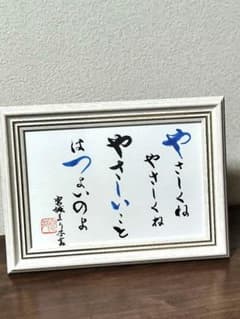 やさしくね
やさしくね
やさしいこと
はつよいのよ
宮城まり子